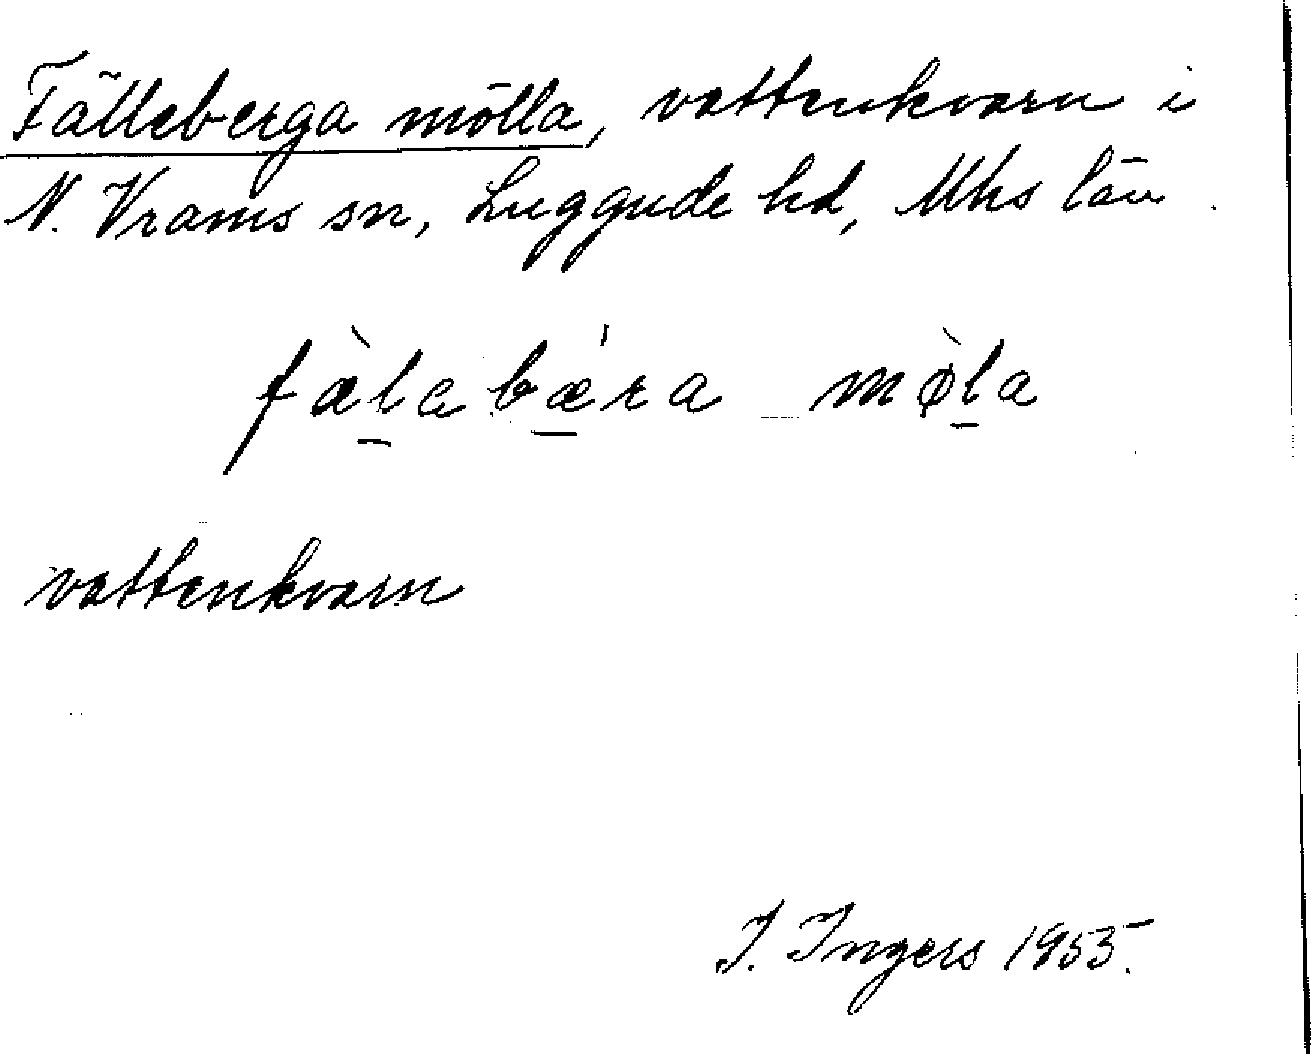 Fälleberga mölla, vattenkvarn i
N. Vrams sn, Luggude hd, Mhs län.
fæ̀labǽra mø̀la
vattenkvarn
I. Ingers 1955.